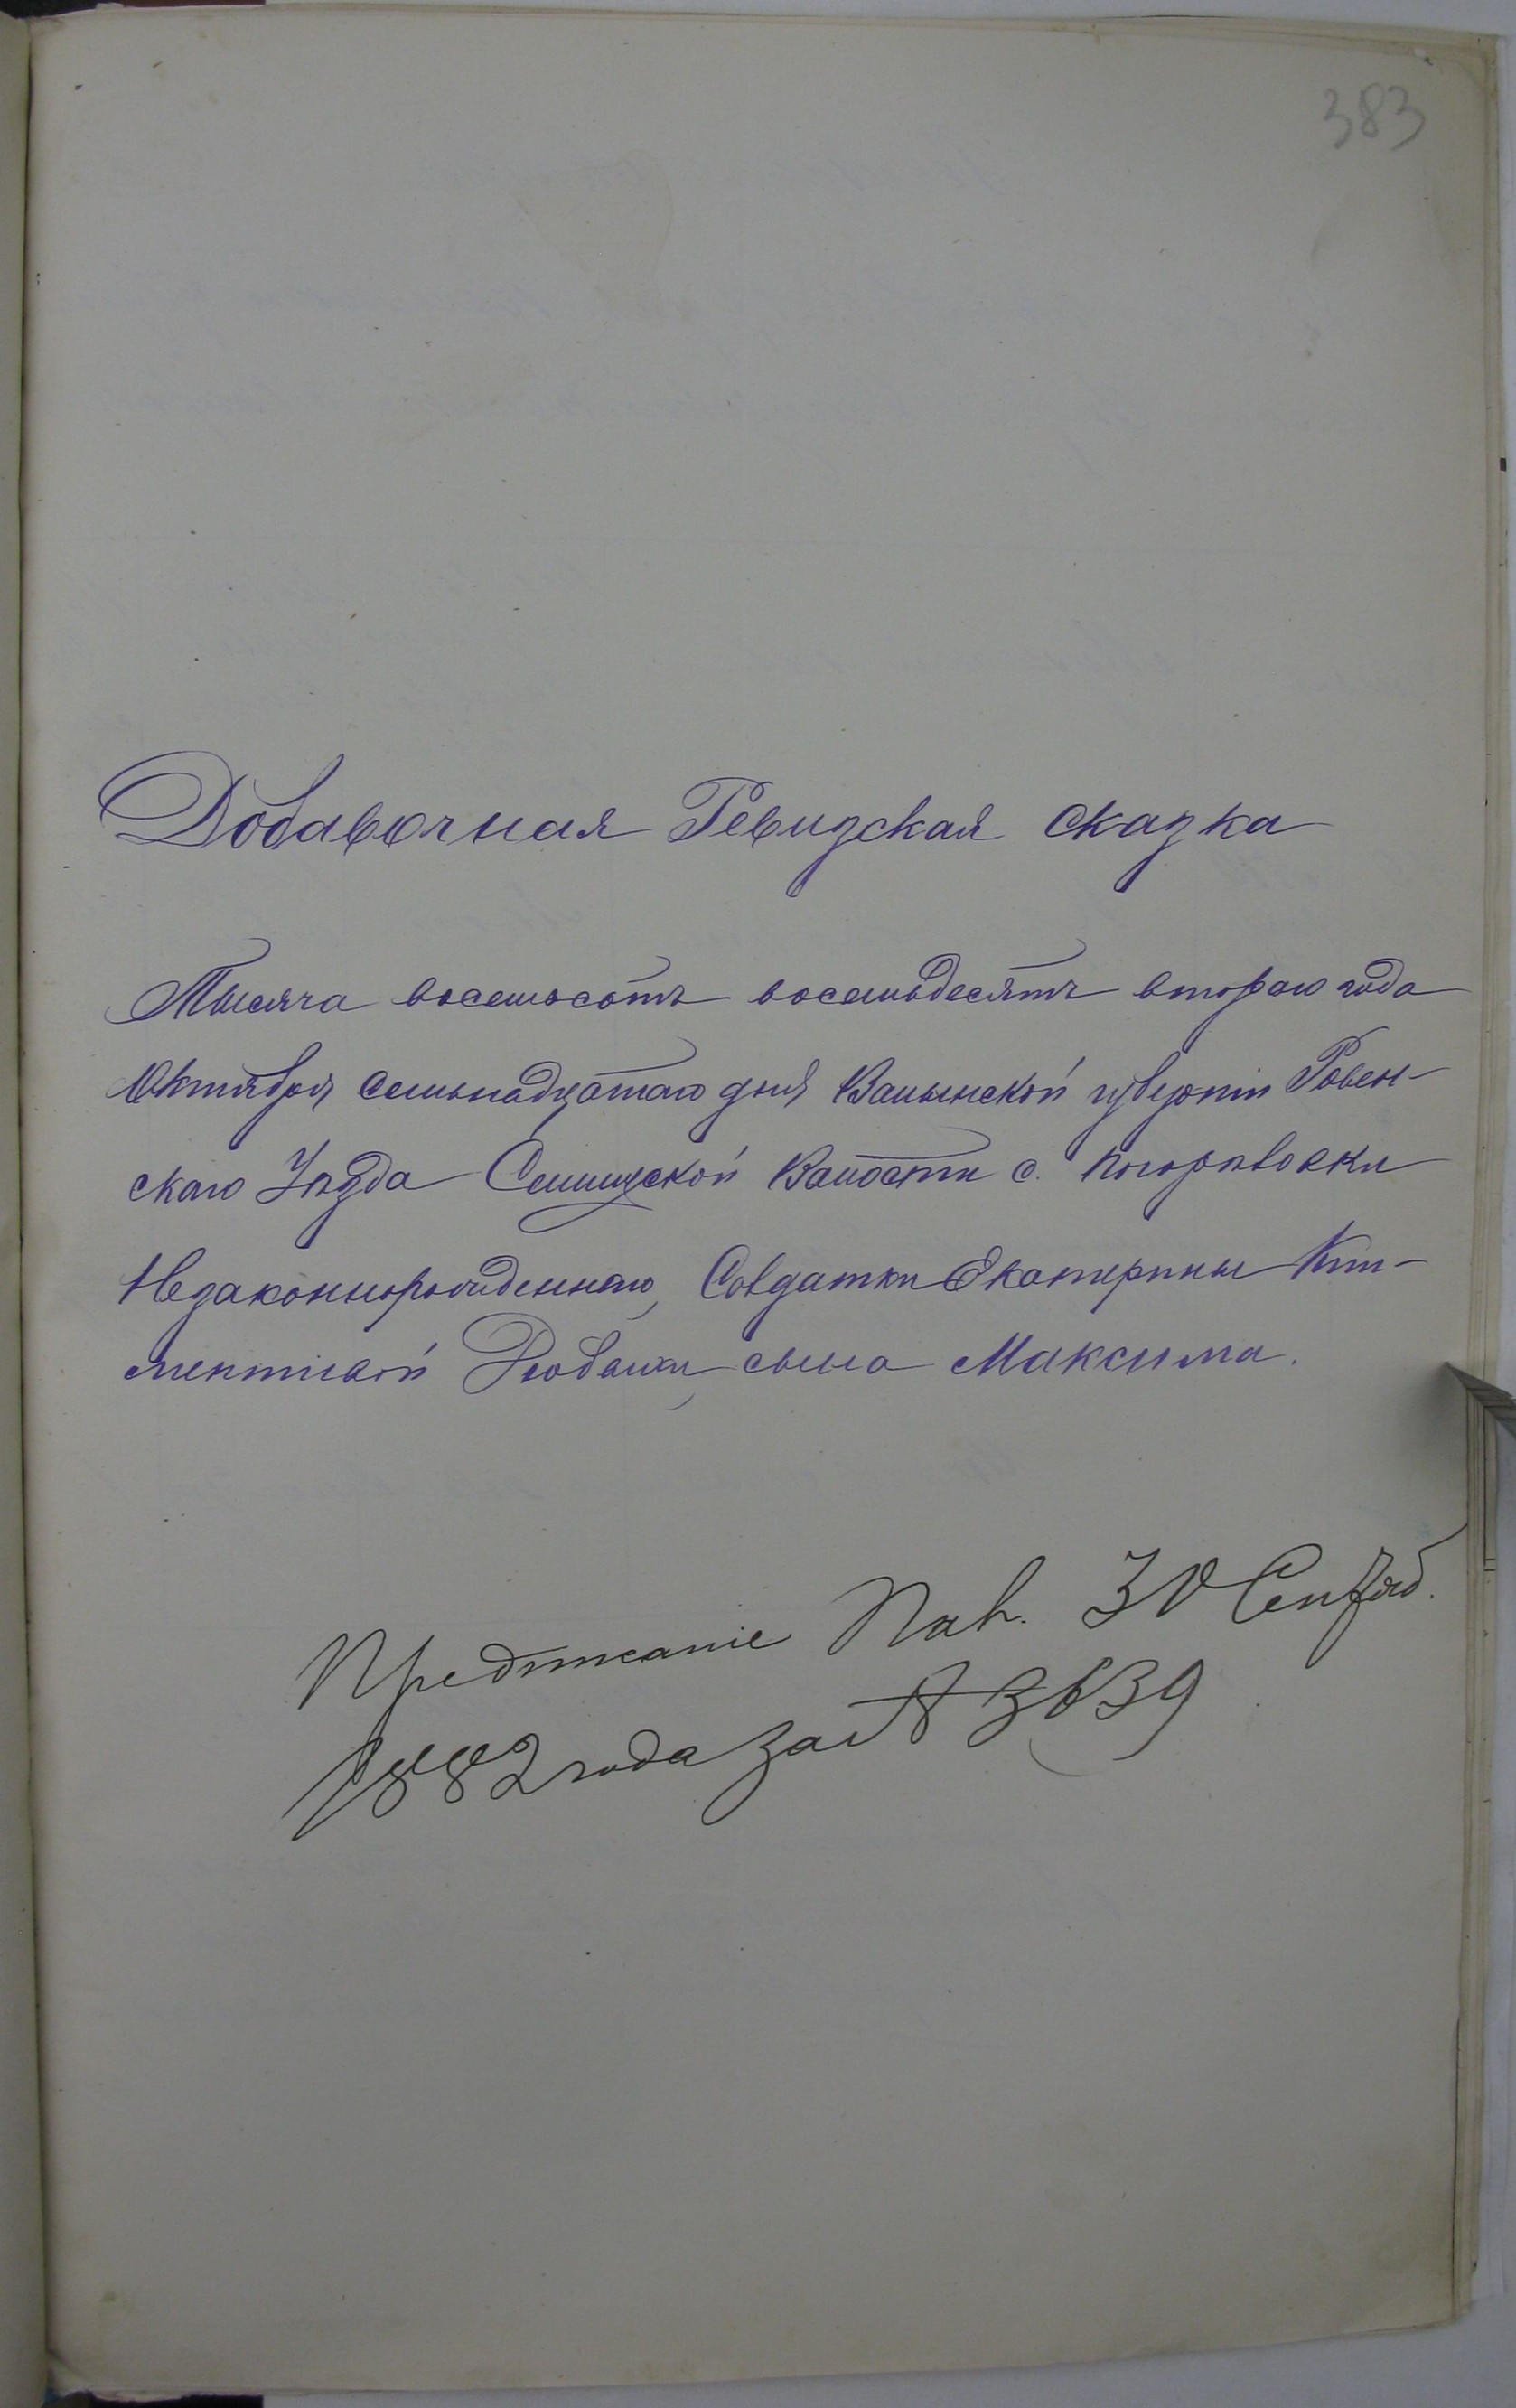 383
Добавочная Ревизская сказка
Тысяча восемьсотъ восемьдесятъ втораго года
Октября семьнадцатаго дня Волынской губерніи Ровен-
скаго Уѣзда Селищской Волости с. Погорѣловки
Незаконнорожденнаго, Солдатки Екатерины Кли-
ментіевой сына Максима.
Предписаніе Пал. 30 Сентяб.
1882 года за № 3639